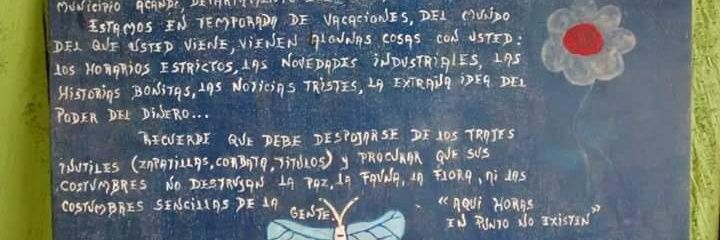 MUNICIPIO ACANDI, DEPARTAMENTO
ESTAMOS EN TEMPORADA DE VACACIONES, DEL MUNDO
DEL QUE USTED VIENE, VIENEN ALGUNAS COSAS CON USTED:
LOS HORARIOS ESTRICTOS, LAS NOVEDADES INDUSTRIALES, LAS
HISTORIAS BONITAS, LAS NOTICIAS TRISTES, LA EXTRAÑA IDEA DEL
PODER DEL DINERO...
RECUERDE QUE DEBE DESPOJARSE DE LOS TRAJES
INUTILES (ZAPATILLAS, CORBATA, TITULOS) Y PROCURAR QUE SUS
COSTUMBRES NO DESTRUSAN LA PAZ, LA FAUNA, LA FLORA, NI LAS
COSTUMBRES SENCILLAS DE LA GENTE.
"AQUI HORAS
EN PUNTO NO EXISTEN"